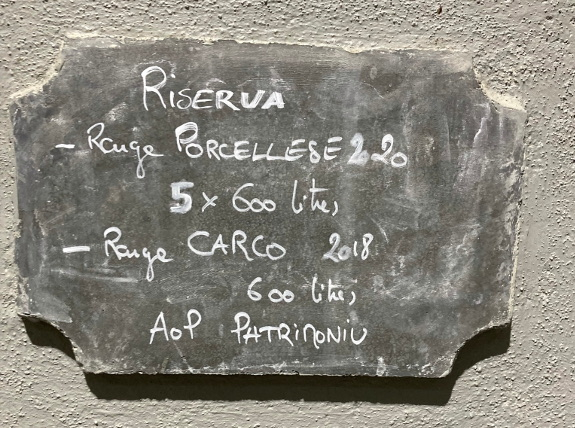 RISERVA
- Rouge PORCELLESE 2020
5 x 600 litres
- Rouge CARCO 2018
600 litres
AOP PATRIMONIU